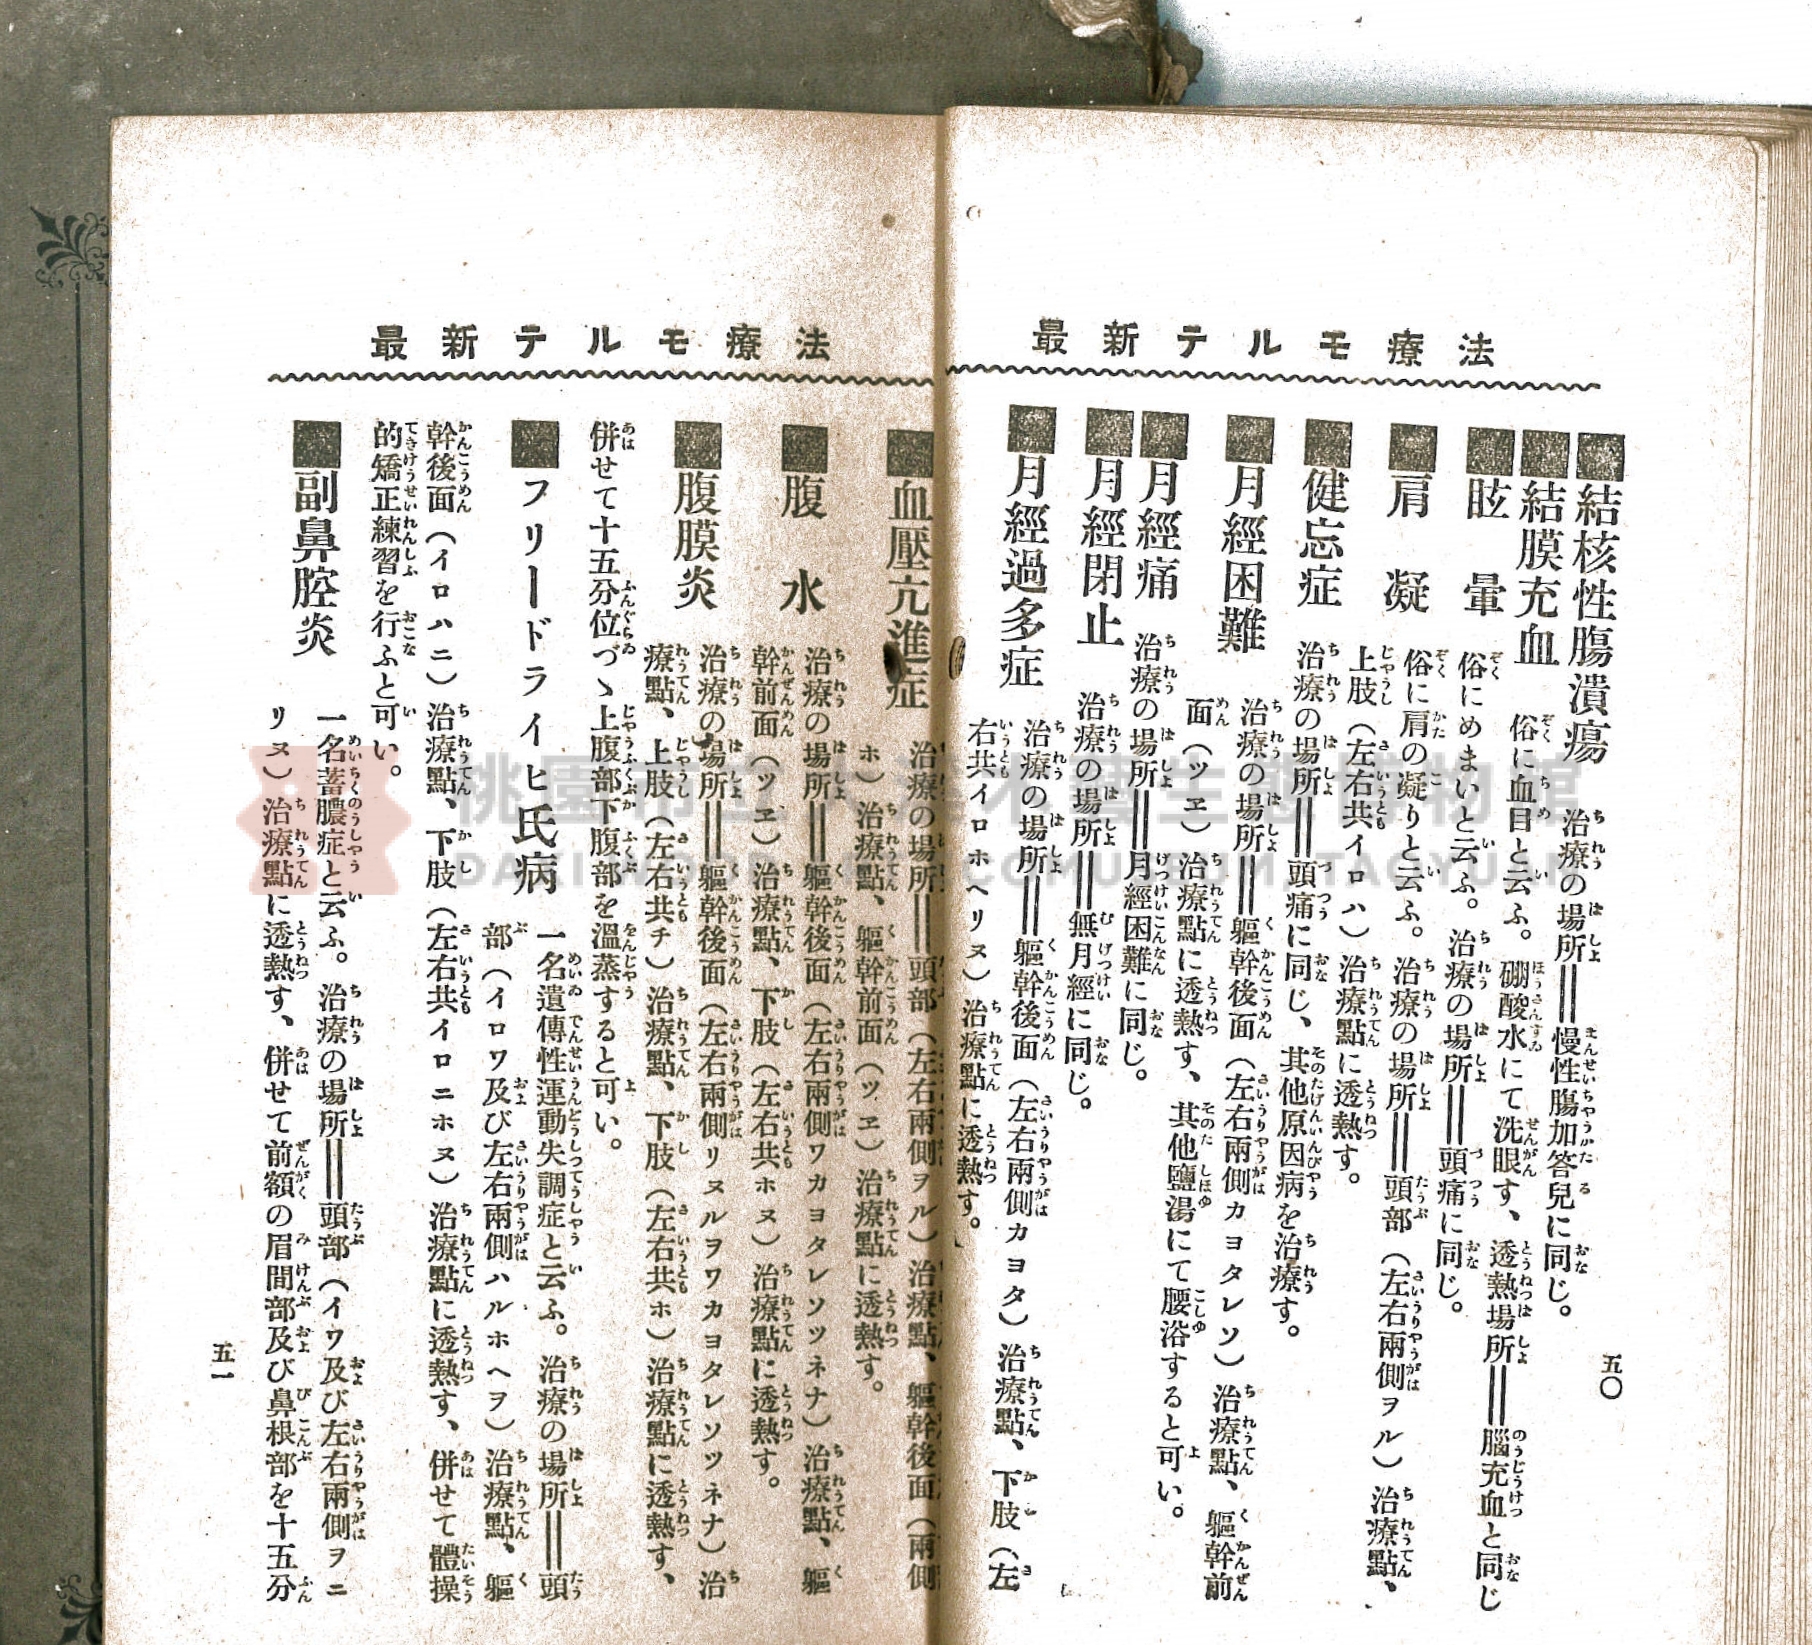 最新テルモ療法
結核性腸潰瘍 治療の場所＝慢性腸加答兒に同じ。
結膜充血 俗に血目と云ふ。硼酸水にて洗眼す、透熱場所＝腦充血と同じ
眩暈 俗にめまいと云ふ。治療の場所＝頭痛に同じ。
肩凝 俗に肩の凝りと云ふ。治療の場所＝頭部（左右兩側ヲル）治療點、
上肢（左右共イロハ）治療點に透熱す。
健忘症 治療の場所＝頭痛に同じ、其他原因病を治療す。
月經困難 治療の場所＝軀幹後面（左右兩側カヨタレソ）治療點、軀幹前
面（ツヱ）治療點に透熱す、其他鹽湯にて腰浴すると可い。
月經痛 治療の場所＝月經困難に同じ。
月經閉止 治療の場所＝無月經に同じ。
月經過多症 治療の場所＝軀幹後面（左右兩側カヨタ）治療點、下肢（左
右共イロホヘリヌ）治療點に透熱す。
五〇
最新テルモ療法
血壓亢進症 治療の場所＝頭部（左右兩側ヲル）治療點、軀幹後面（兩側
ホ）治療點、軀幹前面（ツヱ）治療點に透熱す。
腹水 治療の場所＝軀幹後面（左右兩側ワカヨタレソツネナ）治療點、軀
幹前面（ツヱ）治療點、下肢（左右共ホヌ）治療點に透熱す。
腹膜炎 治療の場所＝軀幹後面（左右兩側リヌルヲワカヨタレソツネナ）治
療點、上肢（左右共チ）治療點、下肢（左右共ホ）治療點に透熱す、
併せて十五分位づゝ上腹部下腹部を溫蒸すると可い。
フリードライヒ氏病 一名遺傳性運動失調症と云ふ。治療の場所＝頭
部（イロワ及び左右兩側ハルホヘヲ）治療點、軀
幹後面（イロハニ）治療點、下肢（左右共イロニホヌ）治療點に透熱す、併せて體操
的矯正練習を行ふと可い。
副鼻腔炎 一名蓄膿症と云ふ。治療の場所＝頭部（イワ及び左右兩側ヲニ
リヌ）治療點に透熱す、併せて前額の眉間部及び鼻根部を十五分
五一
桃園市立大溪木藝生態博物館
DAXI WOOD ART ECOMUSEUM, TAOYUAN